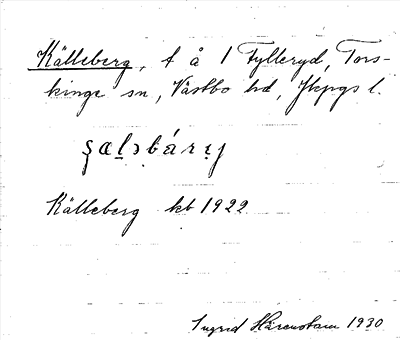 Källeberg, t å 1 Fylleryd, Tors-
kinge sn, Västbo hd, Jkpgs l.
Källeberg kb 1922
Ingrid Härenstam 1930